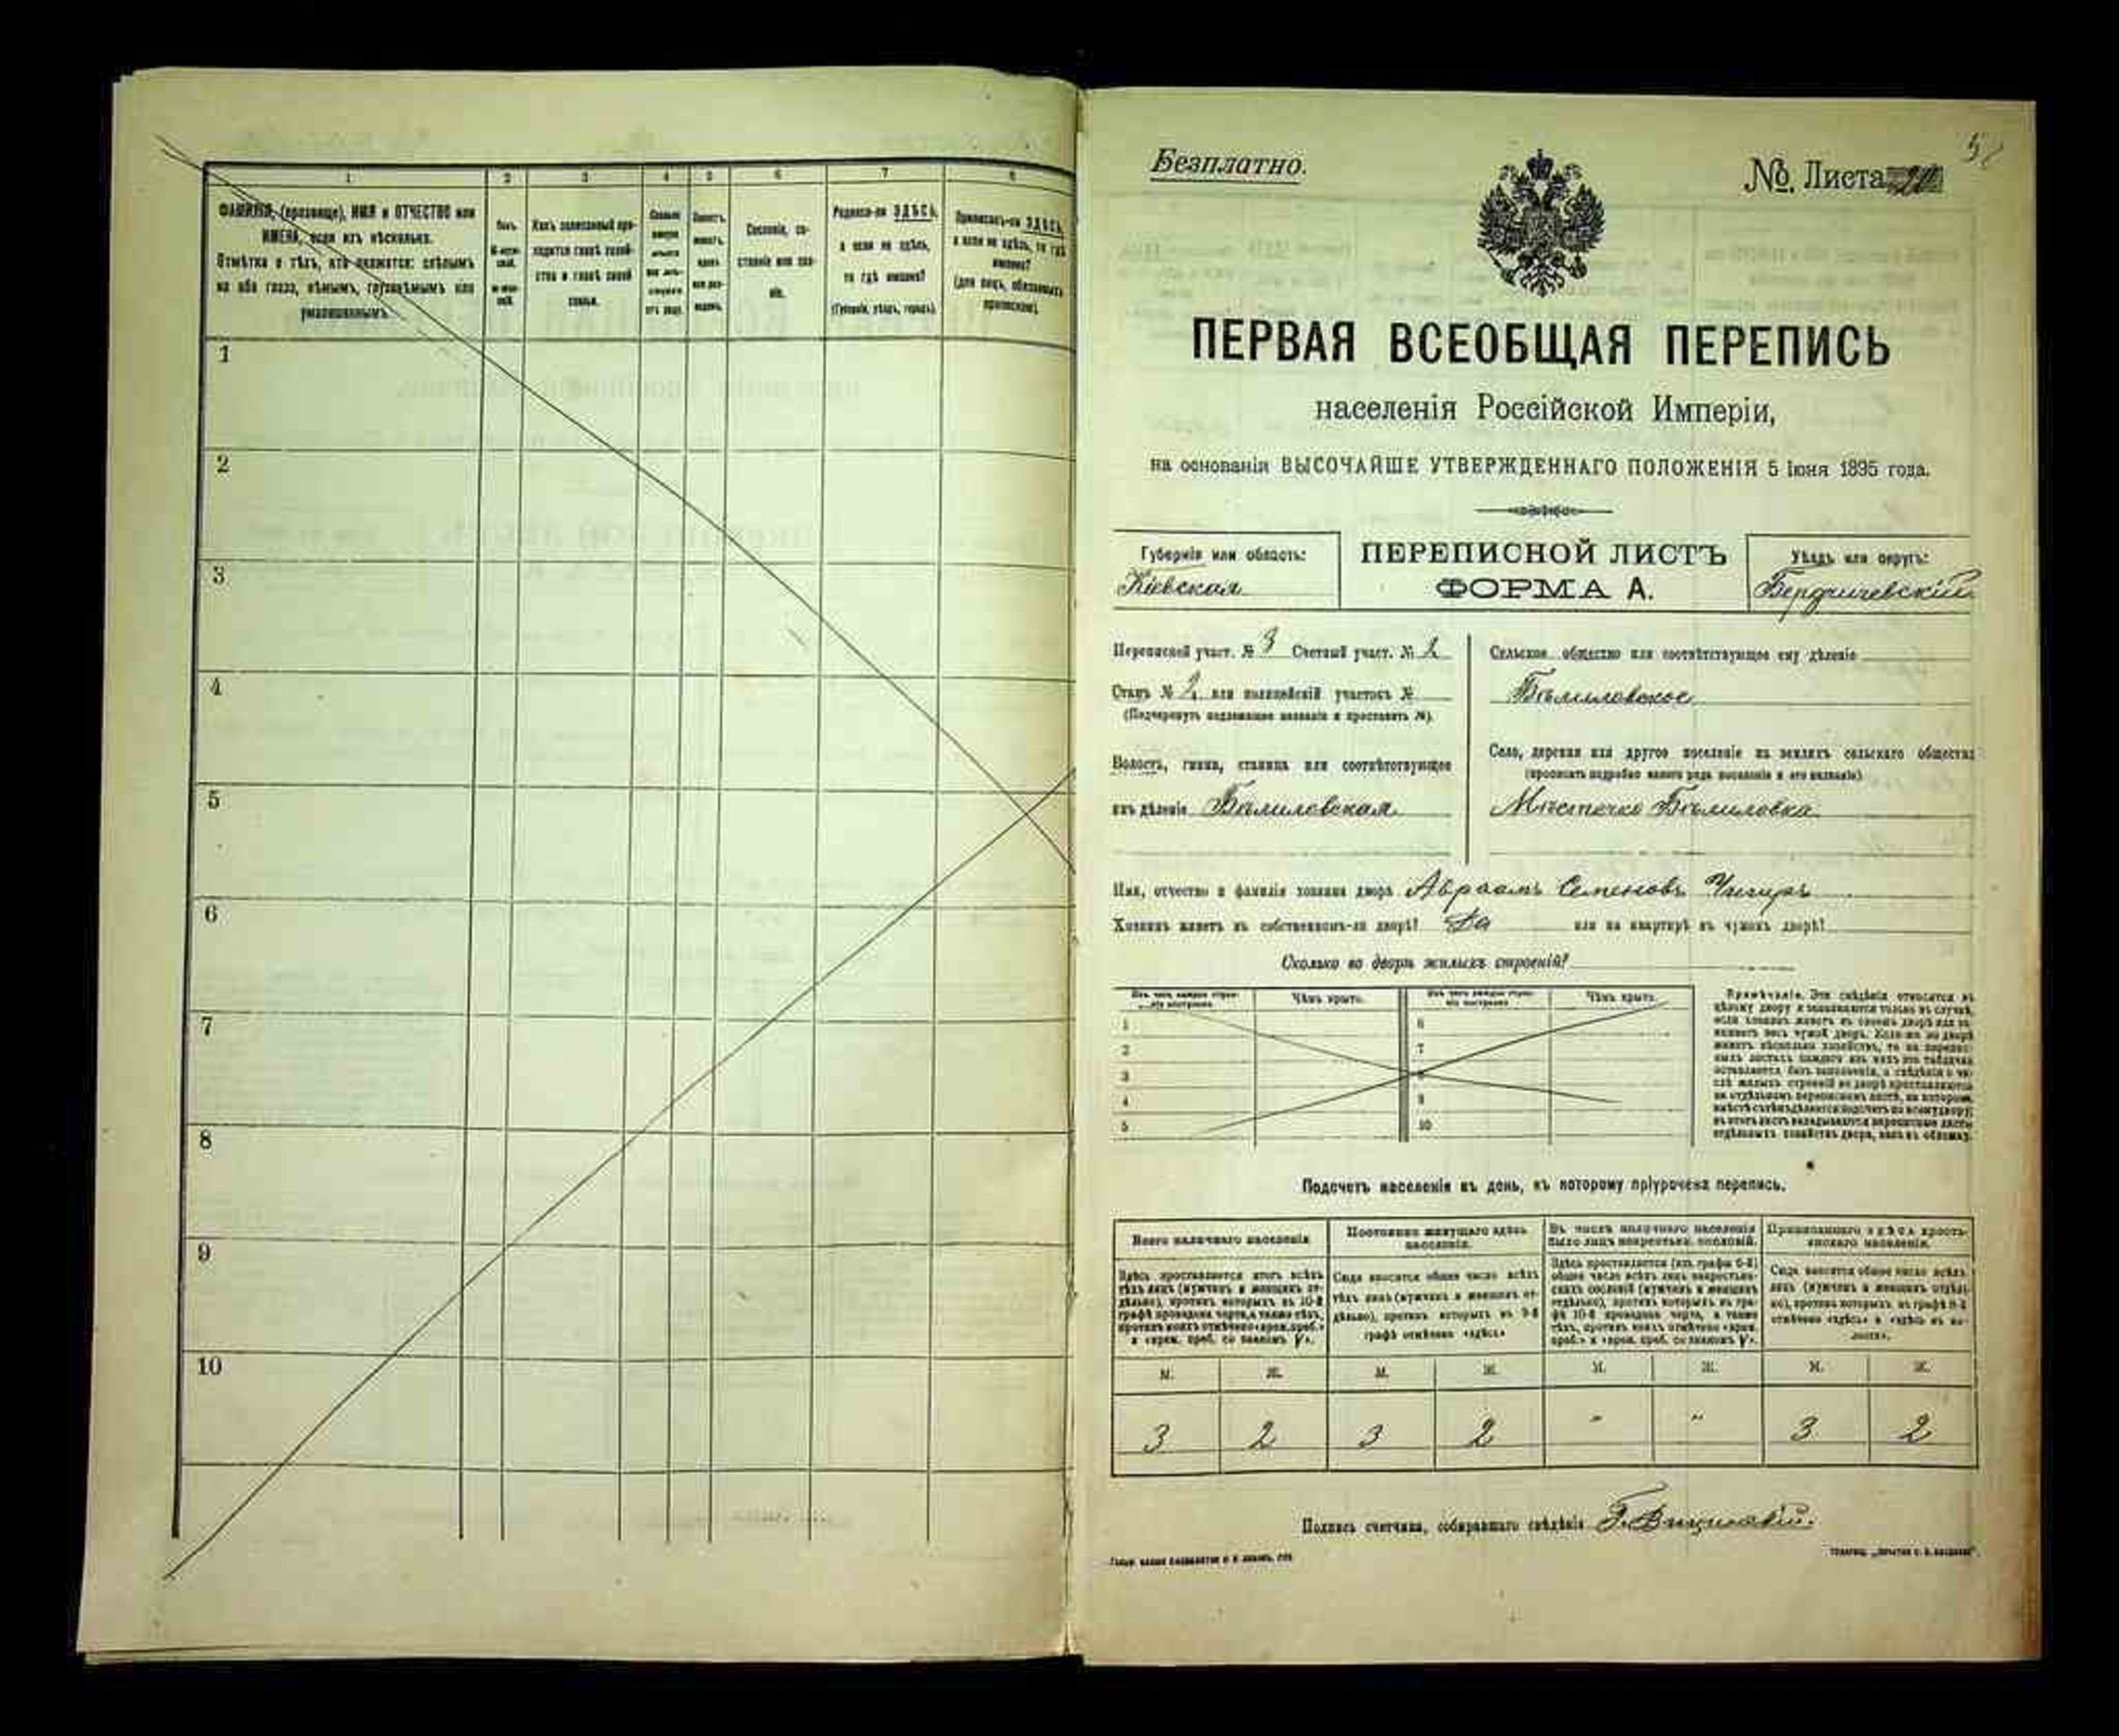 1 2 3 4 5 6 7 8
ФАМИЛІЯ, (прозвище), ИМЯ и ОТЧЕСТВО или
ИМЕНА, если ихъ нѣсколько.
Отмѣтка о тѣхъ, кто окажется: слѣпымъ
на оба глаза, нѣмымъ, глухонѣмымъ или
умалишеннымъ.
Полъ.
Какъ записанный при-
ходится главѣ хозяй-
ства и главѣ своей
семьи.
Сословіе, со-
стояніе или зва-
ніе.
Родился-ли ЗДѢСЬ,
а если не здѣсь,
то гдѣ именно?
(Губернія, уѣздъ, городъ).
Приписанъ-ли ЗДѢСЬ,
а если не здѣсь, то гдѣ
именно?
(для лицъ, обязанныхъ
припиской).
1
2
3
4
5
6
7
8
9
10
Безплатно.
№. Листа
ПЕРВАЯ ВСЕОБЩАЯ ПЕРЕПИСЬ
населенія Россійской Имперіи,
на основаніи ВЫСОЧАЙШЕ УТВЕРЖДЕННАГО ПОЛОЖЕНІЯ 5 Іюня 1895 года.
Губернія или область:
Кіевская
ПЕРЕПИСНОЙ ЛИСТЪ
ФОРМА А.
Уѣздъ или округъ:
Бердичевскій
Переписной участ. № 3 Счетный участ. № 2
Станъ № 2 или полицейскій участокъ №
(Подчеркнуть надлежащее названіе и проставить №).
Волость, гмина, станица или соотвѣтствующее
имъ дѣленіе Бѣлиловская
Сельское общество или соотвѣтствующее ему дѣленіе
Бѣлиловское
Село, деревня или другое поселеніе на земляхъ сельскаго общества
(прописать подробно какого рода поселеніе и его названіе)
Мѣстечко Бѣлиловка
Имя, отчество и фамилія хозяина двора Авраамъ Семеновъ Чигирь
Хозяинъ живетъ въ собственномъ-ли дворѣ? Да или на квартирѣ въ чужомъ дворѣ?
Сколько во дворѣ жилыхъ строеній?
Изъ чего каждое строе-
ніе построено
Чѣмъ крыто.
Изъ чего каждое строе-
ніе построено
Чѣмъ крыто.
1 6
2 7
3 8
4 9
5 10
Примѣчаніе. Эти свѣдѣнія относятся къ
цѣлому двору и записываются только въ случаѣ,
если хозяинъ живетъ въ своемъ дворѣ или за-
нимаетъ весь чужой дворъ. Коли-же во дворѣ
живетъ нѣсколько хозяйствъ, то на перепис-
ныхъ листахъ каждаго изъ нихъ эта табличка
оставляется безъ заполненія, а свѣдѣнія о чи-
слѣ жилыхъ строеній во дворѣ проставляются
на отдѣльномъ переписномъ листѣ, на которомъ
вмѣстѣ съ тѣмъ дѣлается подсчетъ по всему двору;
въ этотъ листъ вкладываются переписные листы
отдѣльныхъ хозяйствъ двора, какъ въ обложку.
Подсчетъ населенія въ день, къ которому пріурочена перепись.
Всего наличнаго населенія
Постоянно живущаго здѣсь
населенія.
Въ числѣ наличнаго населенія
было лицъ некрестьян. сословій.
Приписаннаго здѣсь кресть-
янскаго населенія.
Здѣсь проставляется итогъ всѣхъ
тѣхъ лицъ (мужчинъ и женщинъ от-
дѣльно), противъ которыхъ въ 10-й
графѣ проведена черта, а также тѣхъ,
противъ коихъ отмѣчено «врем. преб.»
и «врем. преб. со знакомъ V».
Сюда вносится общее число всѣхъ
тѣхъ лицъ (мужчинъ и женщинъ от-
дѣльно), противъ которыхъ въ 9-й
графѣ отмѣчено «здѣсь»
Здѣсь проставляется (изъ графы 6-й)
общее число всѣхъ лицъ некрестьян-
скихъ сословій (мужчинъ и женщинъ
отдѣльно), противъ которыхъ въ гра-
фѣ 10-й проведена черта, а также
тѣхъ, противъ коихъ отмѣчено «врем.
преб.» и «врем. преб. со знакомъ V».
Сюда вносится общее число всѣхъ
лицъ (мужчинъ и женщинъ отдѣль-
но), противъ которыхъ въ графѣ 8-й
отмѣчено «здѣсь» и «здѣсь въ во-
лости».
М. Ж. М. Ж. М. Ж. М. Ж.
3 2 3 2 " " 3 2
Подпись счетчика, собиравшаго свѣдѣнія